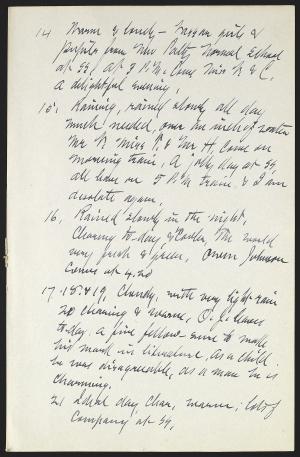 14 Warm & lovely – Vassar girls &
people from New Paltz Normal School
at SS, at 3 P.M. Come Miss R & C,
A delightful evening,
15. Raining, rained slowly all day
much needed, over an inch of water
Mr R Miss R & Mr H, come on
morning train, A jolly day at SS,
all leave on 5 P.M. train & I am
desolate again,
16, Rained slowly in the night,
Clearing to-day, & cooler, The world
very fresh & green, Owen Johnson
comes at 4.20
17-18 & 19, Cloudy, with very light rain
20 clearing & warm, O.J. leaves
to-day, a fine fellow sure to make
his mark in literature, As a child
he was disagreeable, as a man he is
charming.
21 Ideal day, clear, warm; lots of
Company at SS,